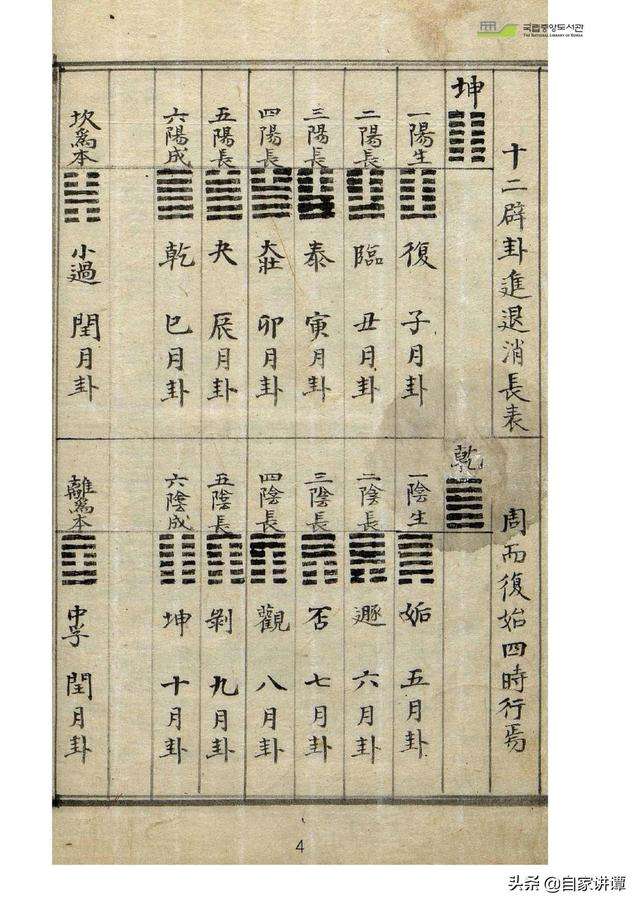 국립중앙도서관
THE NATIONAL LIBRARY OF KOREA
十二辟卦進退消長表 周而復始四時行焉
坤
一陽生 復 子月卦
二陽長 臨 丑月卦
三陽長 泰 寅月卦
四陽長 大壯 卯月卦
五陽長 夬 辰月卦
六陽成 乾 巳月卦
坎爲本 小過 閏月卦
乾
一陰生 姤 五月卦
二陰長 遯 六月卦
三陰長 否 七月卦
四陰長 觀 八月卦
五陰長 剝 九月卦
六陰成 坤 十月卦
離爲本 中孚 閏月卦
4
头条 @自家讲谭